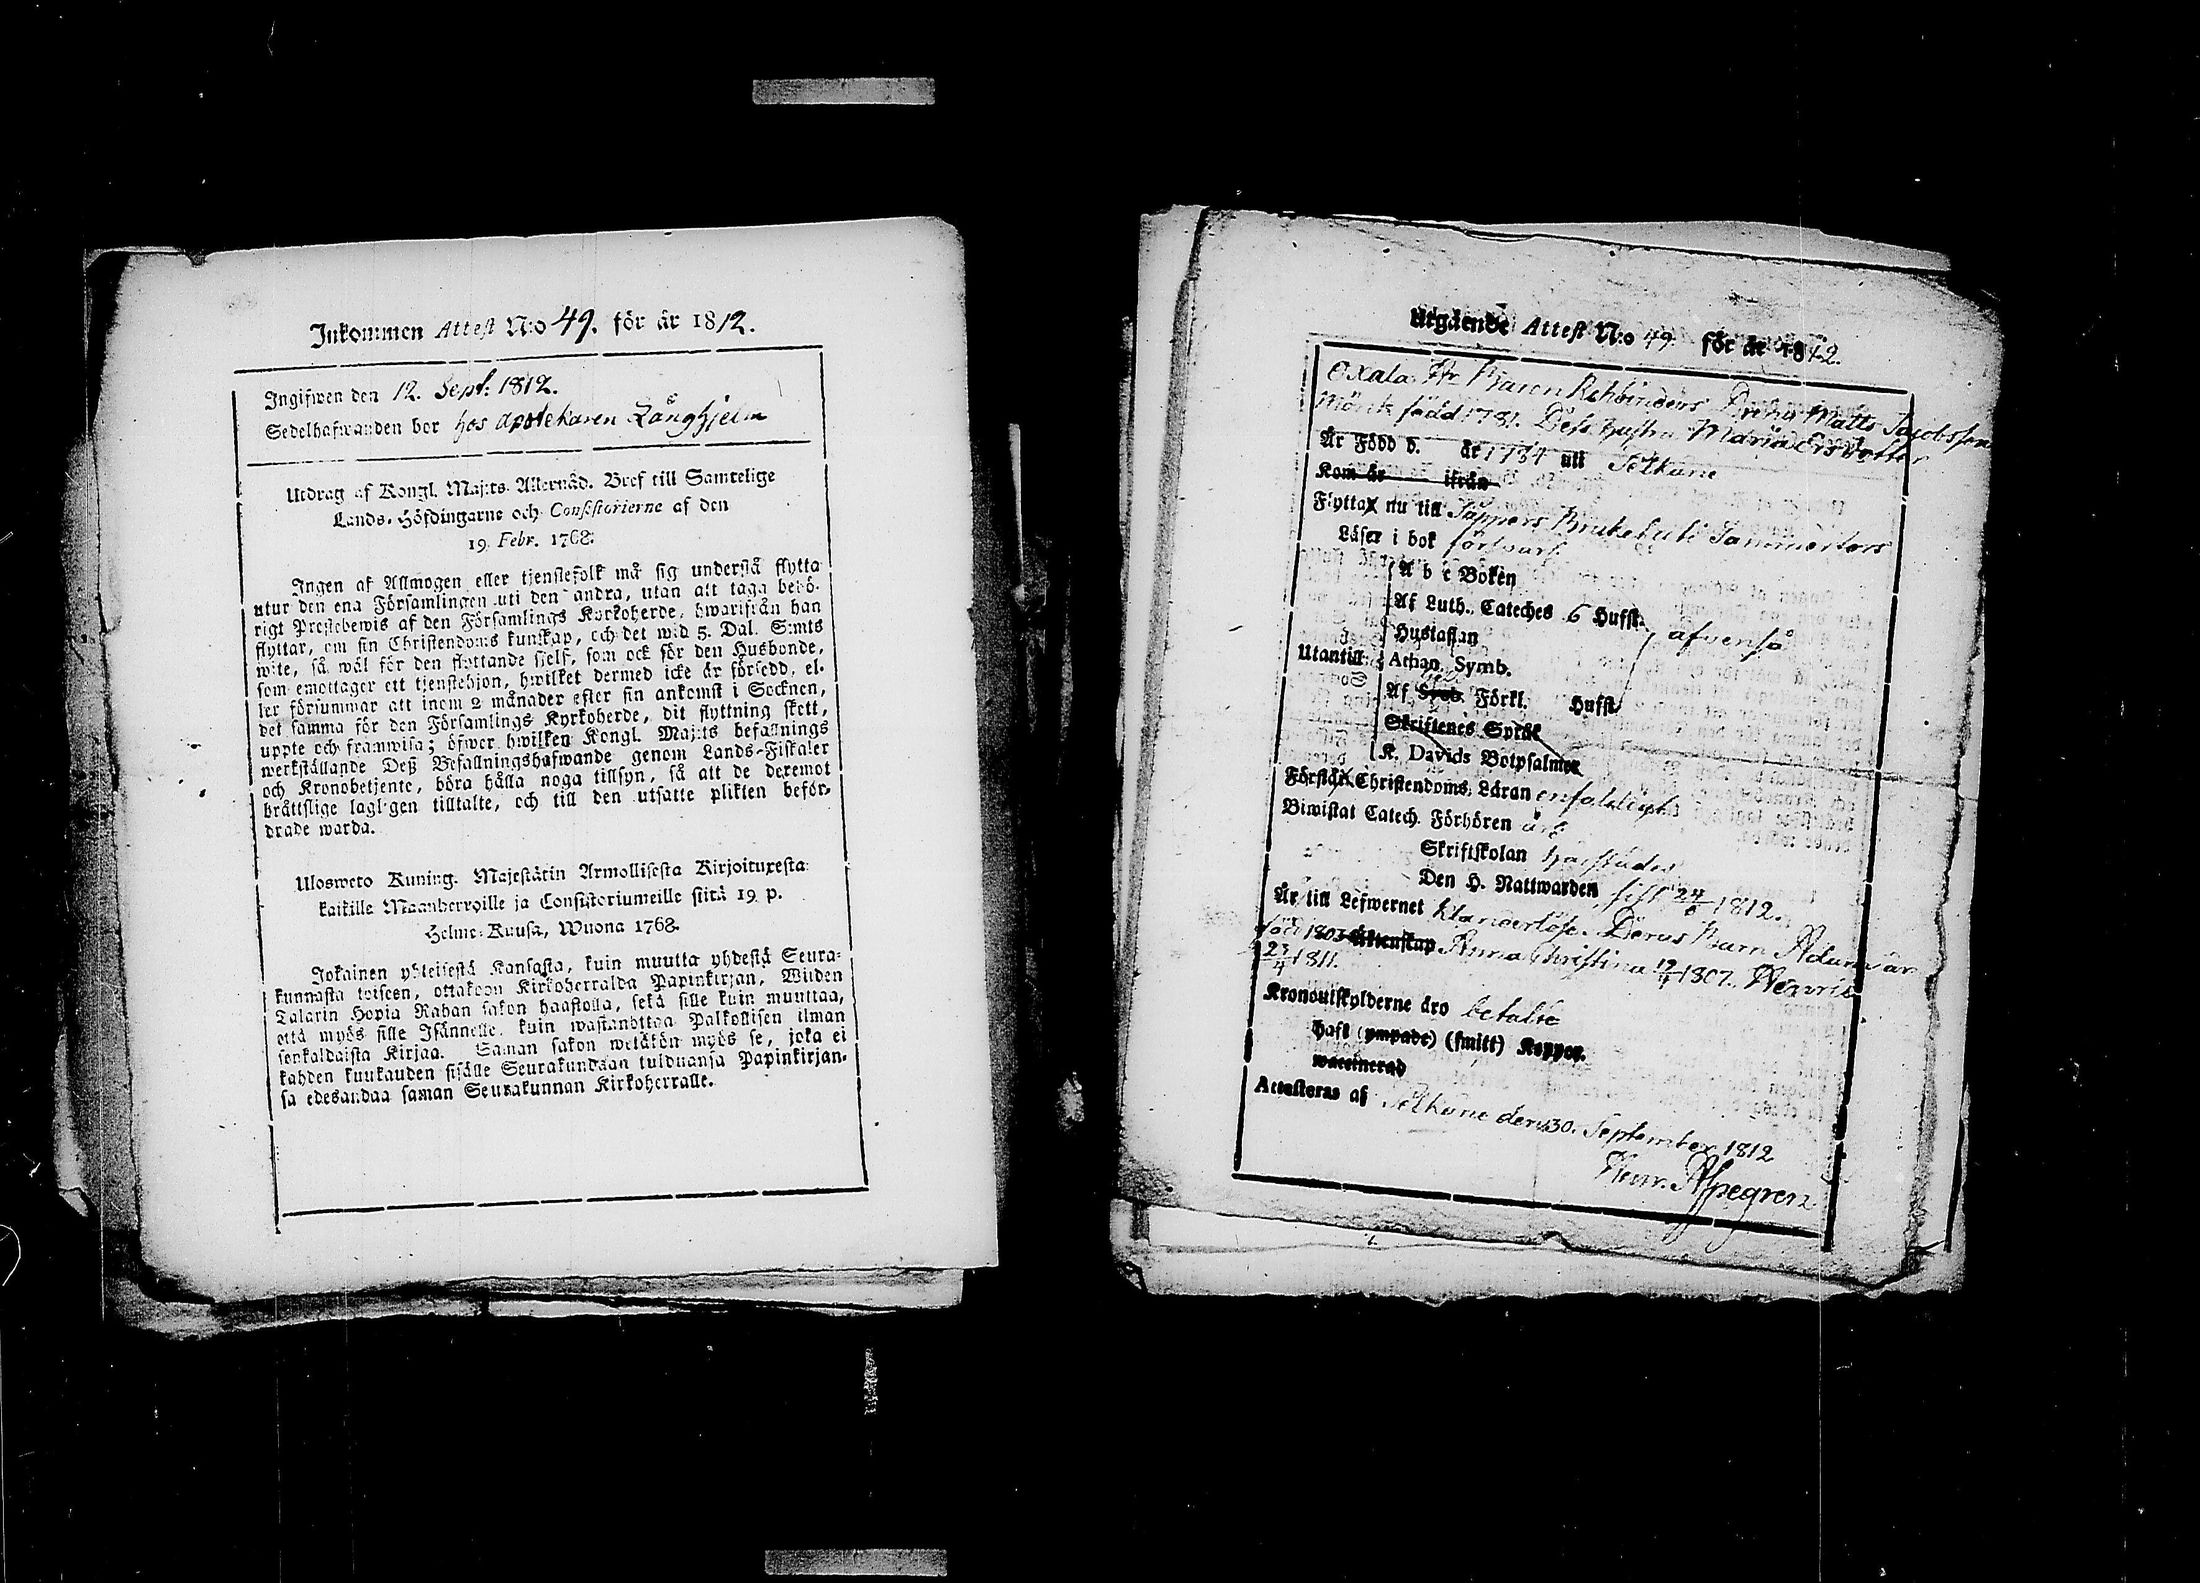 Inkommen Attest N:o 49. för år 1812.
Ingifwen den 12. Sept: 1812.
Sedelhafwanden bor hos Apotekaren Långhjelm
Utdrag af Kongl. Maj:ts Allernåd. Bref till Samtelige
Lands-Höfdingarne och Consistorierne af den
19. Febr. 1768.
Ingen af Allmogen eller tjenstefolk må sig understå flytta
utur den ena Församlingen uti den andra, utan att taga behö-
rigt Prestebewis af den Församlings Kyrkoherde, hwarifrån han
flyttar, om sin Christendoms kunskap, och det wid 5. Dal. S:mts
wite, så wäl för den flyttande sjelf, som ock för den Husbonde,
som emottager ett tjenstehjon, hwilket dermed icke är försedd, el-
ler försummar att inom 2 månader efter sin ankomst i Socknen,
det samma för den Församlings Kyrkoherde, dit flyttning skett,
uppte och framwisa; öfwer hwilken Kongl. Maj:ts befallnings
werkställande Deß Befallningshafwande genom Lands-Fiskaler
och Kronobetjente, böra hålla noga tillsyn, så att de deremot
bråttslige lagligen tilltalte, och till den utsatte plikten beför-
drade warda.
Ulosweto Kuning. Majestätin Armollisesta Kirjoituxesta
kaikille Maanherroille ja Consistoriumeille siitä 19 p.
Helme-Kuusa, Wuona 1768.
Jokainen yhteisestä Kansasta, kuin muutta yhdestä Seura-
kunnasta toiseen, ottakoon Kirkoherralda Papinkirjan, Wiiden
Talarin Hopia Rahan sakon haastolla, sekä sille kuin muuttaa,
että myös sille Isännelle, kuin wastanottaa Palkollisen ilman
senkaldaista Kirjaa. Saman sakon wetäkön myös se, joka ei
kahden kuukauden sisälle Seurakundaan tulduansa Papinkirjan-
sa edesandaa saman Seurakunnan Kirkoherralle.
Utgående Attest N:o 49 för år 1812.
Oxala Hr Baron Rehbinders Dreng Matts Jacobsson
Mörck född 1781. Dess hustru Maria Ersdotter
Är Född d. år 1784 uti Sälkäne
Kom år ifrån
Flyttar nu till Tammerfors
Läser i bok försvarl.
A b c Boken
Af Luth. Cateches 6 Hufst. äfvenså
Hustaflan
Utantill: Athan. Symb.
Af Förkl. Hufst.
Skriftenes Språk
K. Davids Botpsalmer
Förstår Christendoms Läran enfaldigt
Biwistat Catech. Förhören
Skriftskolan
Den H. Nattwarden sist 24/6 1812.
Är till Lefwernet klanderlöse. Deras Barn Adam är
född 1803 Äktenskap Anna Christina 19/4 1807.
23/4 1811.
Kronoutskylderne äro betalte
haft (ympade) (smitt) Koppor.
waccinerad
Attesteras af Sälkäne den 30. September 1812
Henr. Alpegren